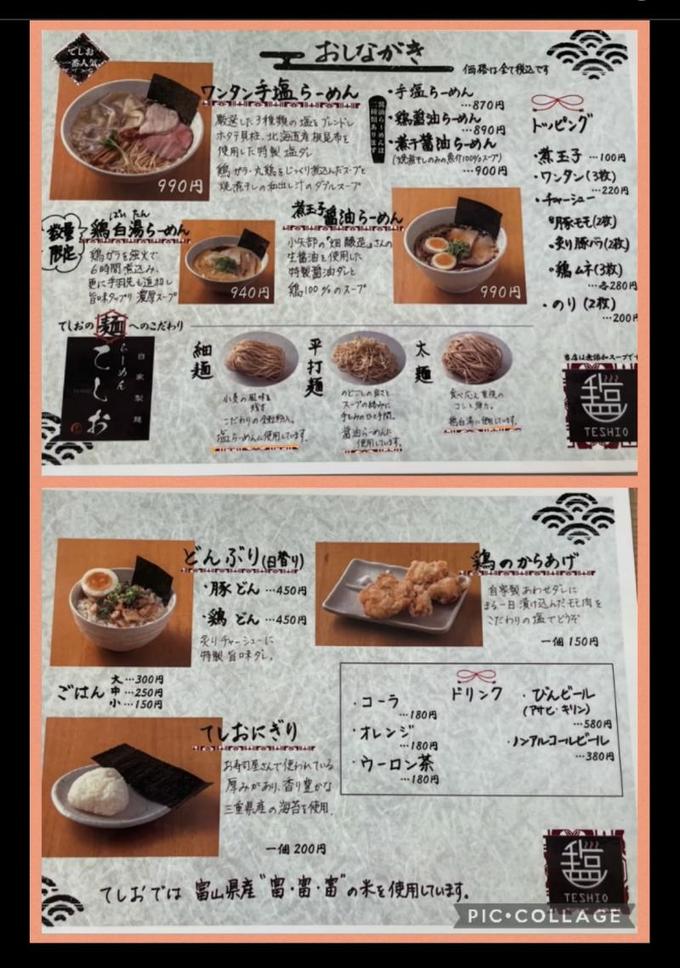 でしお
一番人気
おしながき
価格は全て税込です
ワンタン手塩らーめん
厳選した3種類の塩をブレンドし
ホタテ貝柱、北海道産根昆布を
使用した特製塩ダレ
鶏ガラ・丸鶏をじっくり煮込んだスープと
焼煮干しの和出し汁のダブルスープ
990円
・手塩らーめん
…870円
・鶏醤油らーめん
…890円
・煮干醤油らーめん
(焼煮干しのみの魚介100%スープ)
…900円
トッピング
・煮玉子…100円
・ワンタン(3枚)
…220円
・チャーシュー
豚モモ(2枚)
・炙り豚バラ(2枚)
・鶏ムネ(3枚)
…各280円
・のり(2枚)
…200円
数量
限定
ぱいたん
鶏白湯らーめん
鶏ガラを強火で
6時間煮込み、
更に手羽先も追加し
旨味タップリ濃厚スープ
940円
煮玉子醤油らーめん
小矢部の"畑醸造"さんの
生醤油を使用した
特製醤油ダレと
鶏100%のスープ
990円
てしおの麺へのこだわり
らーめん
てしお
自家製麺
細麺
小麦の風味を
残す
こだわりの全粒粉入。
塩らーめんに使用しています。
平打麺
のどごしの良さと
スープの絡みに
手もみのひと手間。
醤油らーめんに
使用しています。
太麺
食べ応え重視の
コシと弾力。
鶏白湯に使用しています。
当店は無添加スープです
塩
TESHIO
どんぶり(日替り)
・豚どん…450円
・鶏どん…450円
炙りチャーシューに
特製旨味ダレ。
ごはん
大…300円
中…250円
小…150円
鶏のからあげ
自家製あわせダレに
まる一日漬け込んだモモ肉を
こだわりの塩でどうぞ
一個150円
ドリンク
・コーラ
…180円
・オレンジ
…180円
・ウーロン茶
…180円
・びんビール
(アサヒ・キリン)
…580円
・ノンアルコールビール
…380円
てしおにぎり
お寿司屋さんで使われている
厚みがあり、香り豊かな
三重県産の海苔を使用。
一個200円
てしおでは富山県産"富・富・富"の米を使用しています。
塩
TESHIO
PIC•COLLAGE